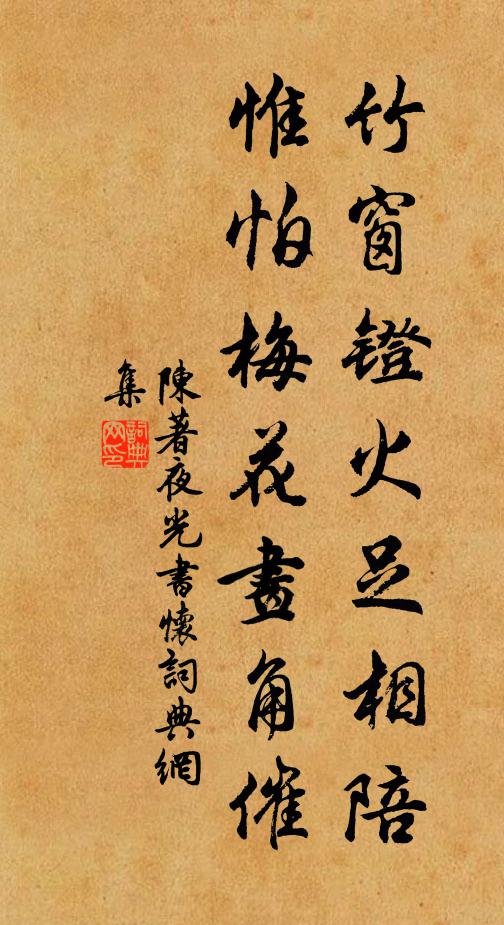 竹窗鐙火足相陪
惟怕梅花畫角催
陳著夜光書懷詞典網
集
詞典
网印